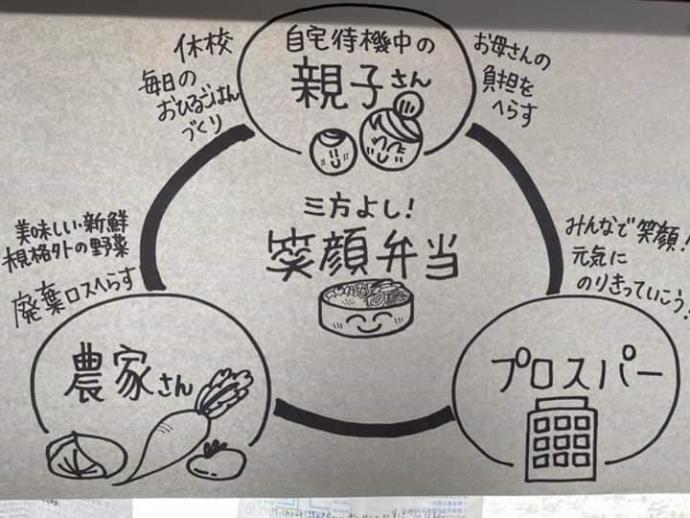 休校
毎日の
おひるごはん
づくり
自宅待機中の
親子さん
お母さんの
負担を
へらす
三方よし!
笑顔弁当
美味しい・新鮮
規格外の野菜
廃棄ロスへらす
みんなで笑顔!
元気に
のりきっていこう!
農家さん
プロスパー